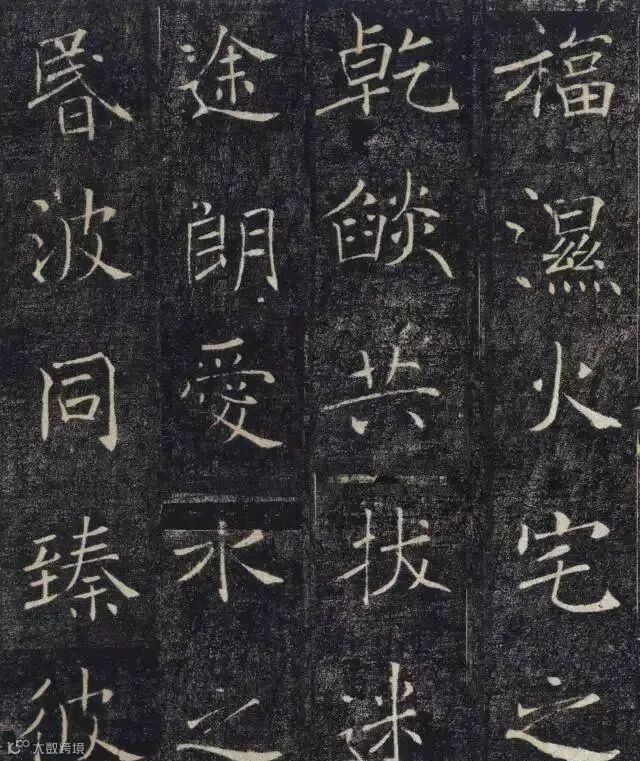 福濕火宅之
乾燄共拔迷
途朗愛水之
昬波同臻彼
大数跨境